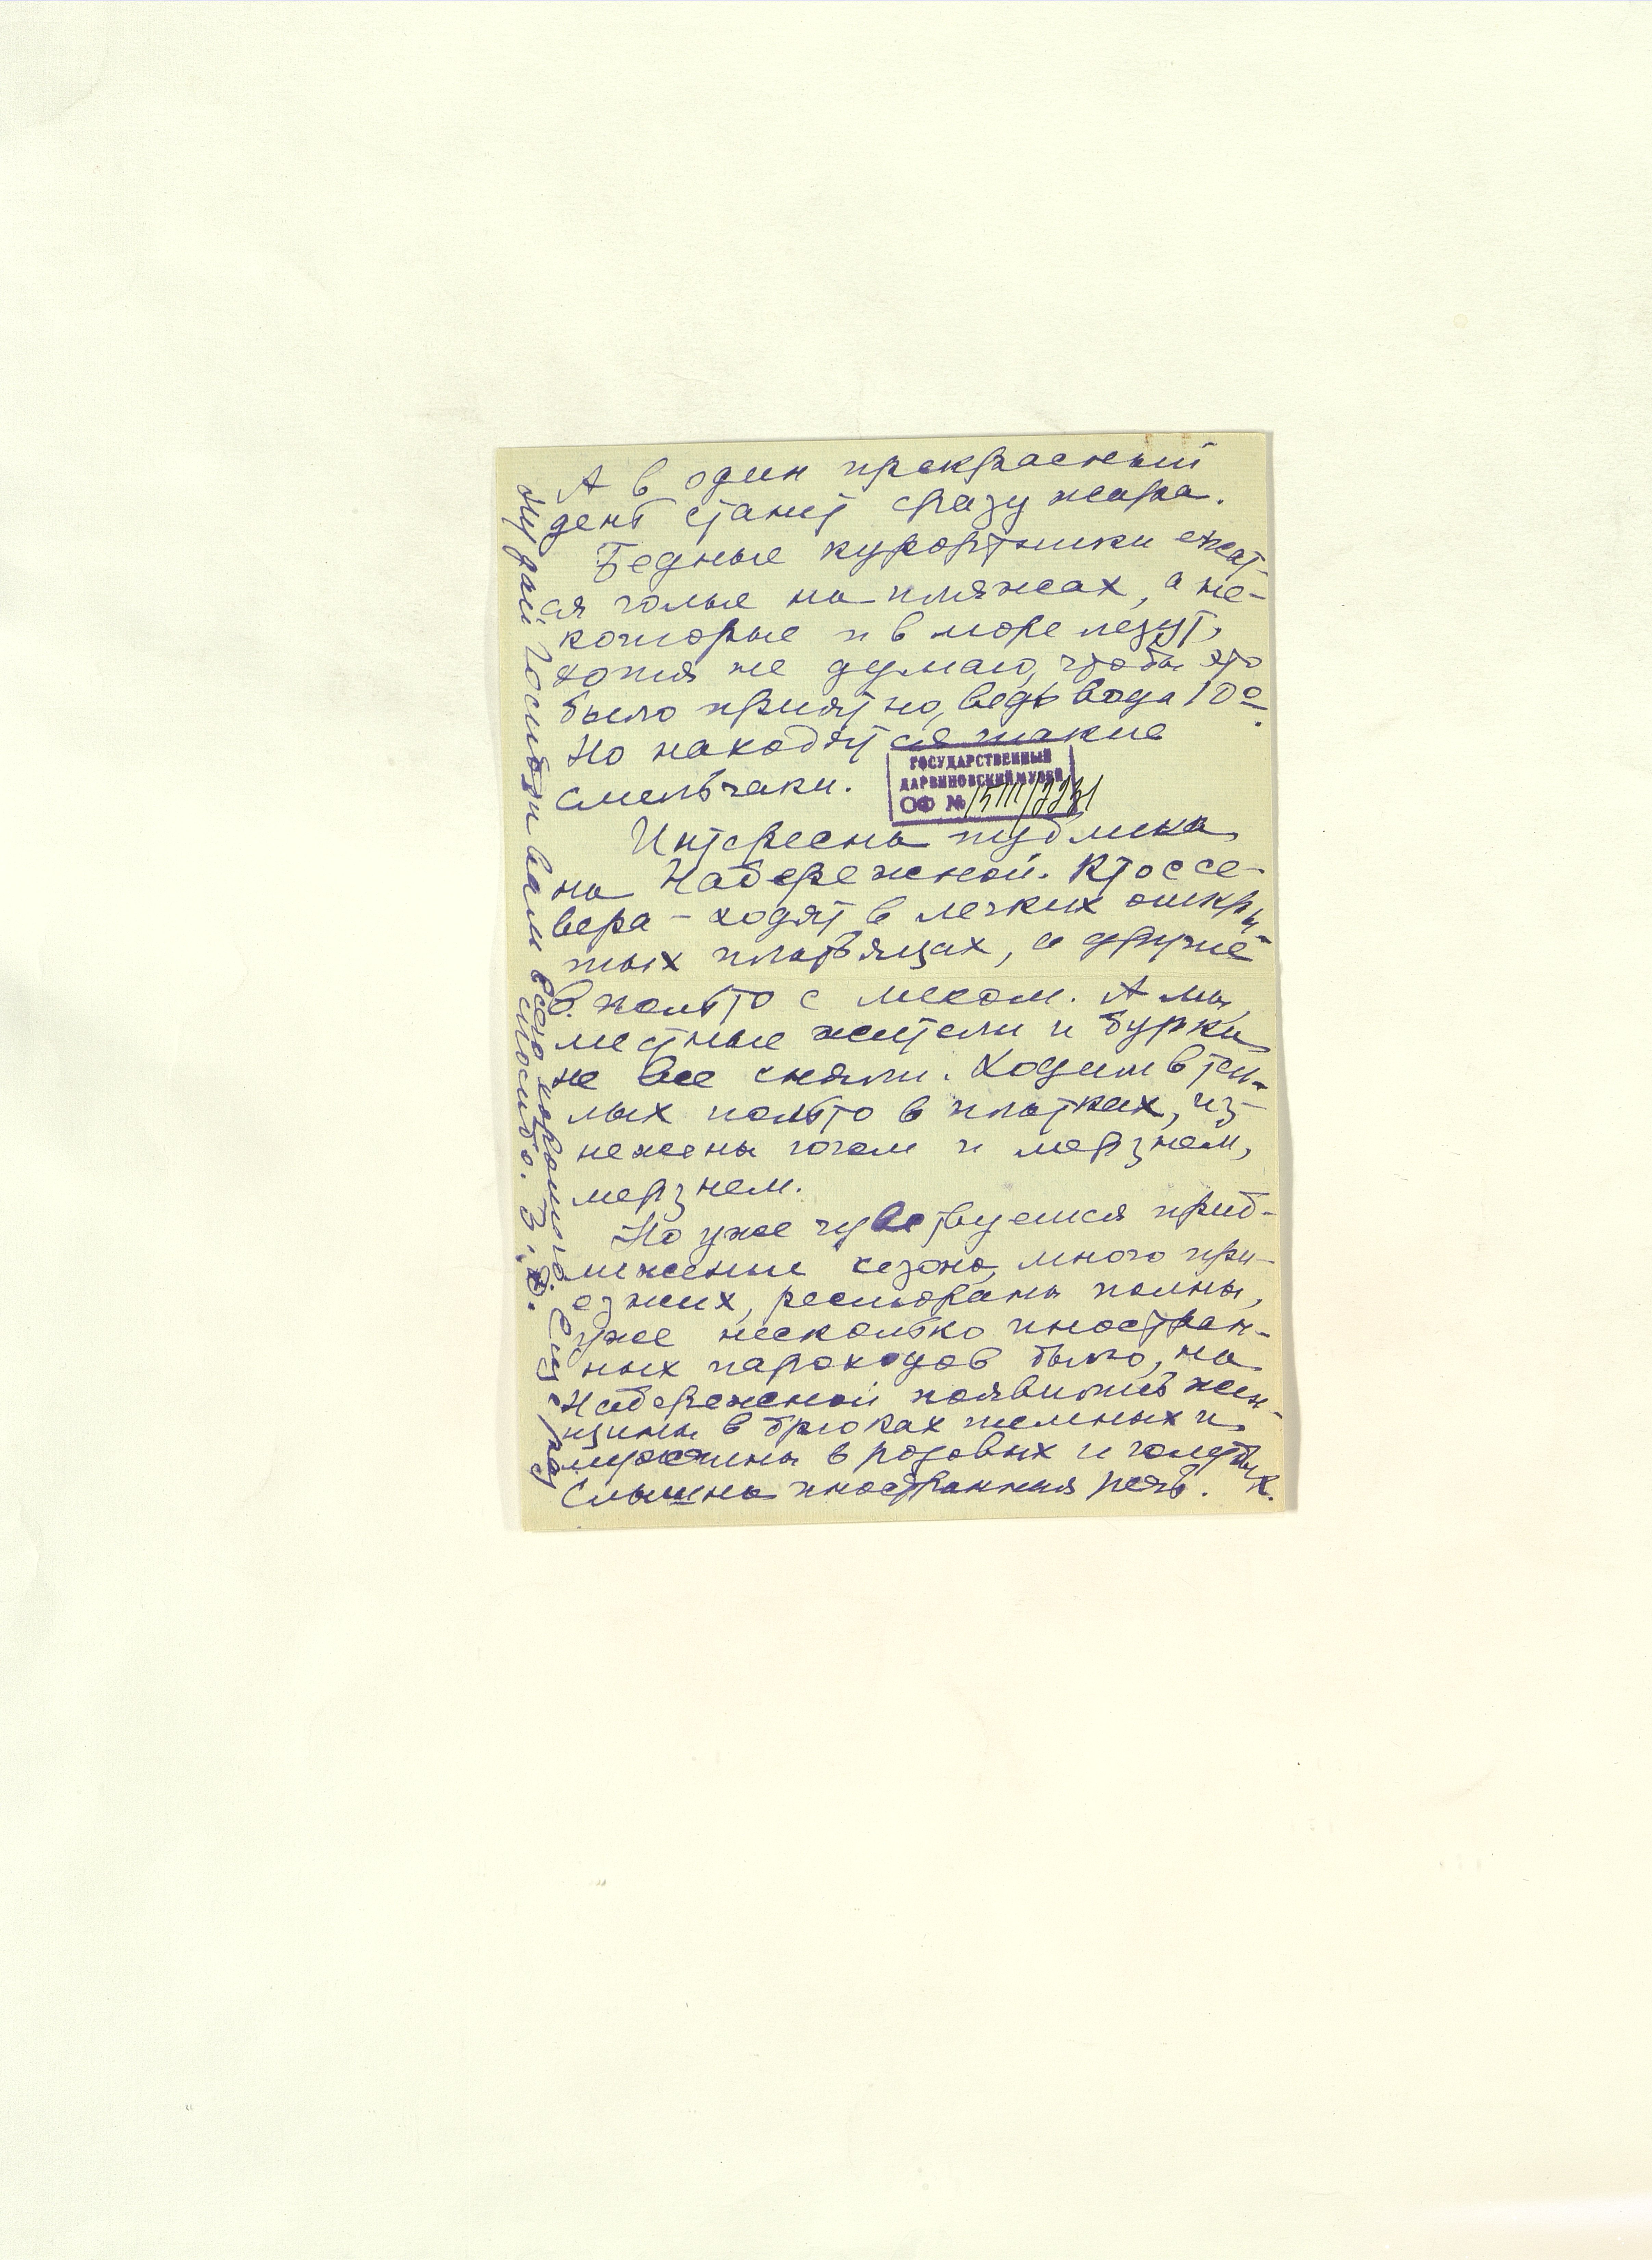 А в один прекрасный
день станет сразу жара.
Бедные курортники ежат-
ся голые на пляжах, а не-
которые и в море лезут,
хотя не думаю, чтобы это
было приятно, ведь вода 10°.
Но находятся такие
смельчаки.
ГОСУДАРСТВЕННЫЙ
ДАРВИНОВСКИЙ МУЗЕЙ
ОФ №
Интересна публика
на Набережной. Кто с се-
вера – ходят в легких откры-
тых платьицах, а другие
в пальто с мехом. А мы,
местные жители и бурки
не все сняли. Ходим в теп-
лых пальто в платках, из-
нежены югом и мерзнем,
мерзнем.
Но уже чувствуется приб-
лижение сезона, много при-
езжих, рестораны полны,
уже несколько иностран-
ных пароходов было, на
Набережной появились жен-
щины в брюках темных и
мужчины в розовых и голубых.
Слышна иностранная речь.
Ну дай Господи вам всего хорошего. Еще раз
спасибо. З.